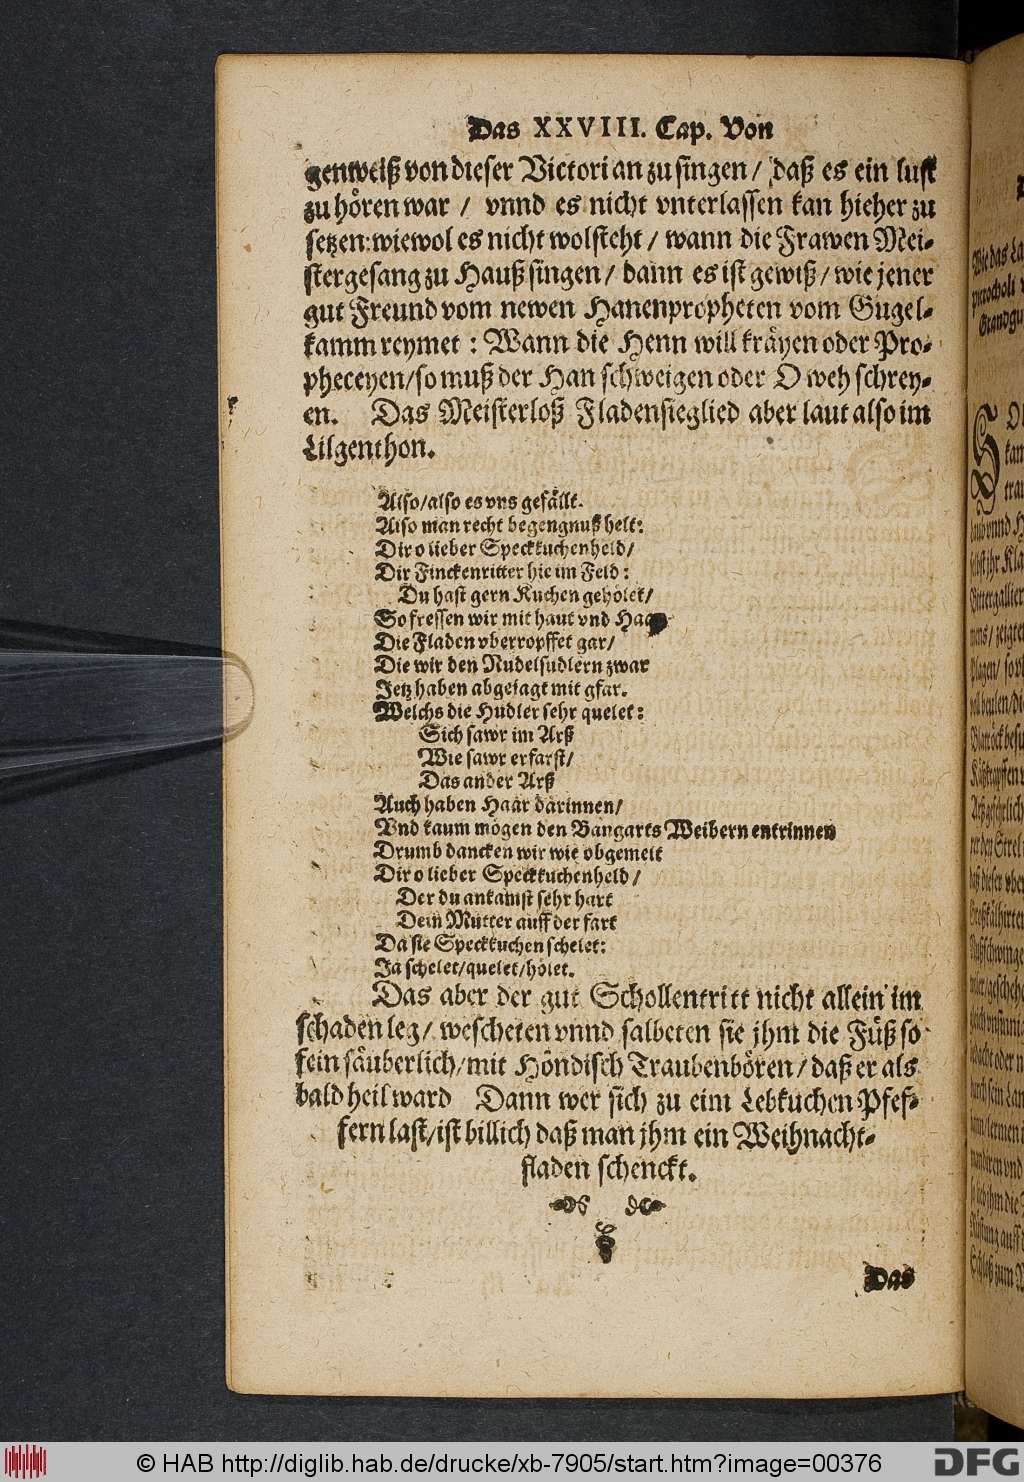 Das XXVIII. Cap. Von
genweiß von dieser Victori an zu singen / daß es ein lust
zu hören war / vnnd es nicht vnterlassen kan hieher zu
setzen: wiewol es nicht wolsteht / wann die Frawen Mei-
stergesang zu Hauß singen / dann es ist gewiß / wie jener
gut Freund vom newen Hanenpropheten vom Gugel-
kamm reymet : Wann die Henn will kräyen oder Pro-
pheceyen / so muß der Han schweigen oder O weh schrey-
en. Das Meisterloß Fladensieglied aber laut also im
Lilgenthon.
Also / also es vns gefällt.
Also man recht begengnuß helt:
Dir o lieber Speckkuchenheld /
Dir Finckenritter hie im Feld :
Du hast gern Kuchen geholet /
So fressen wir mit haut vnd Haar
Die Fladen vberropffet gar /
Die wir den Nudelsudlern zwar
Jetz haben abgejagt mit gfar.
Welchs die Hudler sehr quelet:
Sich sawr im Arß
Wie sawr erfarst /
Das ander Arß
Auch haben Haar darinnen /
Vnd kaum mögen den Bangarts Weibern entrinnen
Drumb dancken wir wie obgemelt
Dir o lieber Speckkuchenheld /
Der du ankamst sehr hart
Dein Mutter auff der fart
Da sie Speckkuchen schelet:
Ja schelet / quelet / holet.
Das aber der gut Schollentritt nicht allein im
schaden leg / wescheten vnnd salbeten sie jhm die Füß so
fein säuberlich / mit Höndisch Traubenbören / daß er als
bald heil ward Dann wer sich zu eim Lebkuchen Pfef-
fern last / ist billich daß man jhm ein Weihnacht-
fladen schenckt.
Das
© HAB http://diglib.hab.de/drucke/xb-7905/start.htm?image=00376
DFG